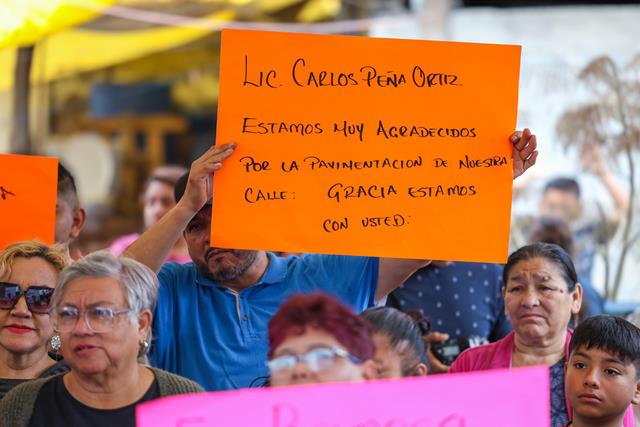 LIC. CARLOS PEÑA ORTIZ.
ESTAMOS MUY AGRADECIDOS
POR LA PAVIMENTACION DE NUESTRA
CALLE: GRACIA ESTAMOS
CON USTED: